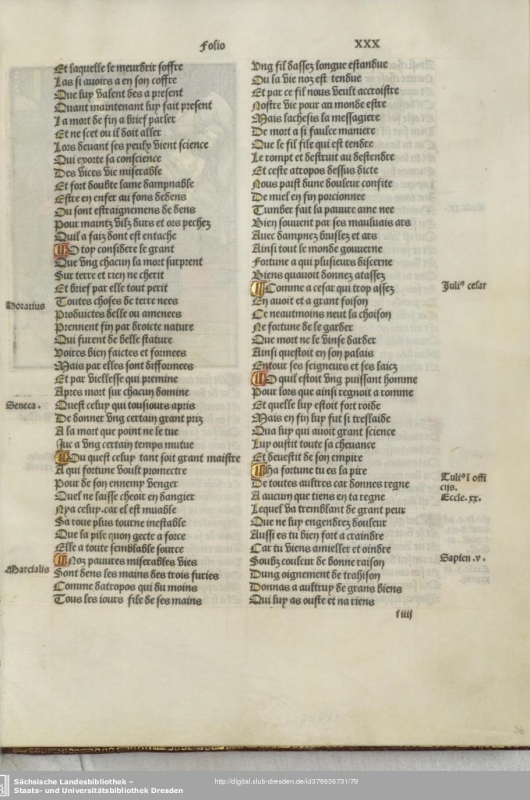 Folio XXX
Et laquelle le meurdrir souffre
Las si avoirs a en son coffre
Que luy valent des a present
Quant maintenant luy fait present
La mort de fin a brief parler
Et ne scet ou il doit aller
Lors devant ses yeulx vient science
Qui exorte sa conscience
Des vices vie miserable
Et fort doubte lame dampnable
Estre en enfer au fons dedens
Ou sont estraignemens de dens
Pour maintz vilz durs et ors pechez
Quil a faiz dont est entache
O toy considere le grant
Que ung chacun la mort surprent
Sur terre et rien ne cherit
Et brief par elle tout perit
Horatius
Toutes choses de terre nees
Produictes belle ou amenees
Prennent fin par droicte nature
Qui furent de belle stature
Voires bien faictes et formees
Mais par elles sont difformees
Et par viellesse qui premine
Apres mort sur chacun domine
Seneca.
Quest celuy qui tousiours apris
De donner ung certain grant priz
A la mort que point ne le tue
Juc a ung certain temps mutue
Ou quest celuy tant soit grant maistre
A qui fortune voult promectre
Pour de son ennemy venger
Quel ne laisse cheoir en dangier
Nya celuy. car el est muable
Sa roue plus tourne inestable
Que la pile quon gecte a force
Elle a toute semblable source
Noz pauvres miserables vies
Marcialis
Sont dens les mains des trois furies
Comme datropos qui du moins
Tous les iours file de ses mains
Ung fil dassez longue estandue
Ou la vie noz est tendue
Et par ce fil nous veult accroistre
Nostre vie pour au monde estre
Mais lachesis la messagiere
De mort a si faulce maniere
Que le fil file qui est tendre
Le rompt et destruit au destendre
Et ceste atropos dessus dicte
Nous paist dune douleur confite
De miel en fin porcionnee
Tumber fait la pauvre ame nee
Bien souvent par ses mauluais ars
Avec dampnez bruslez et ars
Ainsi tout le monde gouverne
Fortune a qui plusieurs discerne
Biens quavoit donnez atassez
Comme a cesar qui trop assez
Juli⁹ cesar
En avoit et a grant foison
Ce neautmoins neut la choison
Ne fortune de le garder
Que mort ne le vinse darder
Ainsi questoit en son palais
Entour ses seigneurs et ses laicz
O quil estoit ung puissant homme
Pour lors que ainsi regnoit a romme
Et quelle luy estoit fort roide
Mais en fin luy fut si treslaide
Qua luy qui avoit grant science
Luy oustit toute sa chevance
Et devestit de son empire
Ha fortune tu es la pire
De toutes aultres car donnes regne
Tuli⁹ I offi
cijs.
A aucun que tiens en ta regne
Eccle. xx.
Lequel va tremblant de grant peur
Que ne luy engendrez douleur
Aussi es tu bien fort a craindre
Car tu viens amieller et oindre
Soubz couleur de bonne raison
Sapien. v.
Dung oignement de trahison
Donnas a aultruy de grans biens
Qui luy as ouste et na riens
f iiij
Sächsische Landesbibliothek –
Staats- und Universitätsbibliothek Dresden
http://digital.slub-dresden.de/id378636731/79